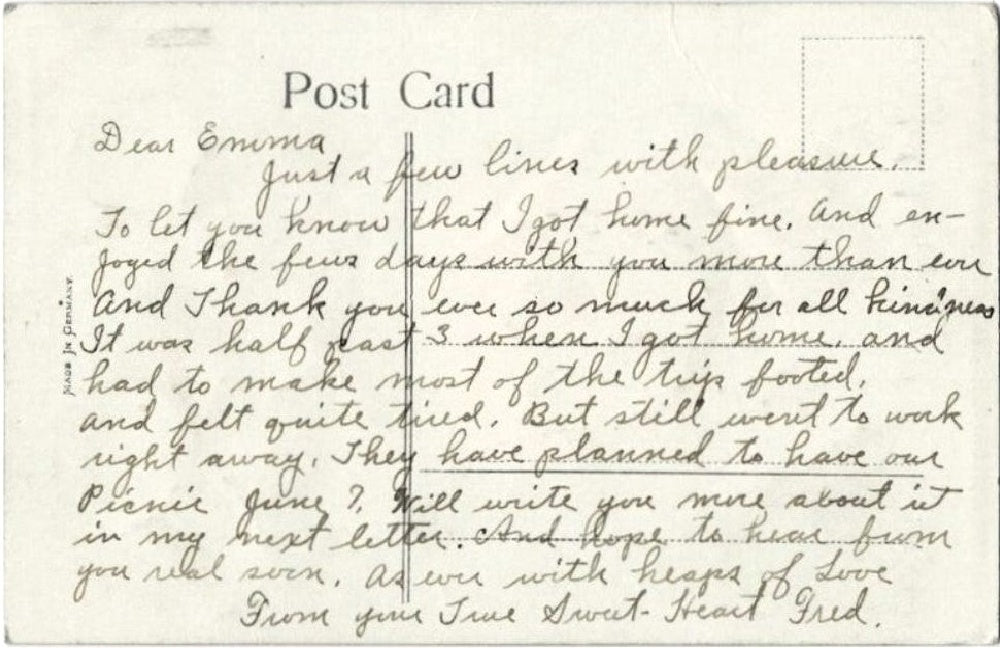 Post Card
Dear Emma
Just a few lines with pleasure.
To let you know that I got home fine. And en-
joyed the few days with you more than ever
And Thank you ever so much for all kindness
It was half past 3 when I got home. and
had to make most of the trip footed.
and felt quite tired. But still went to work
right away. They have planned to have our
Picnic June 7. Will write you more about it
in my next letter. And hope to hear from
you real soon. As ever with heaps of Love
From your True Sweet-Heart Fred.
MADE IN GERMANY.